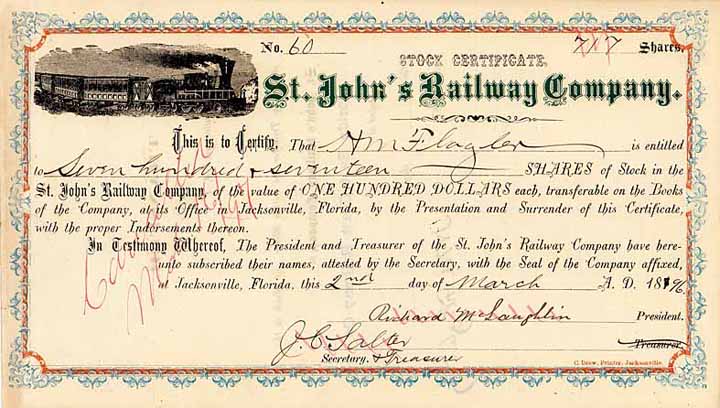 No. 60 717 Shares.
STOCK CERTIFICATE.
St. John's Railway Company.
This is to Certify, That H M Flagler is entitled
to Seven hundred & seventeen SHARES of Stock in the
St. John's Railway Company, of the value of ONE HUNDRED DOLLARS each, transferable on the Books
of the Company, at its Office in Jacksonville, Florida, by the Presentation and Surrender of this Certificate,
with the proper Indorsements thereon.
In Testimony Whereof, The President and Treasurer of the St. John's Railway Company have here-
unto subscribed their names, attested by the Secretary, with the Seal of the Company affixed,
at Jacksonville, Florida, this 2nd day of March A. D. 1896
Richard McLaughlin President.
J. C. Salter Treasurer.
Secretary. & Treasurer
C. Drew, Printer, Jacksonville.